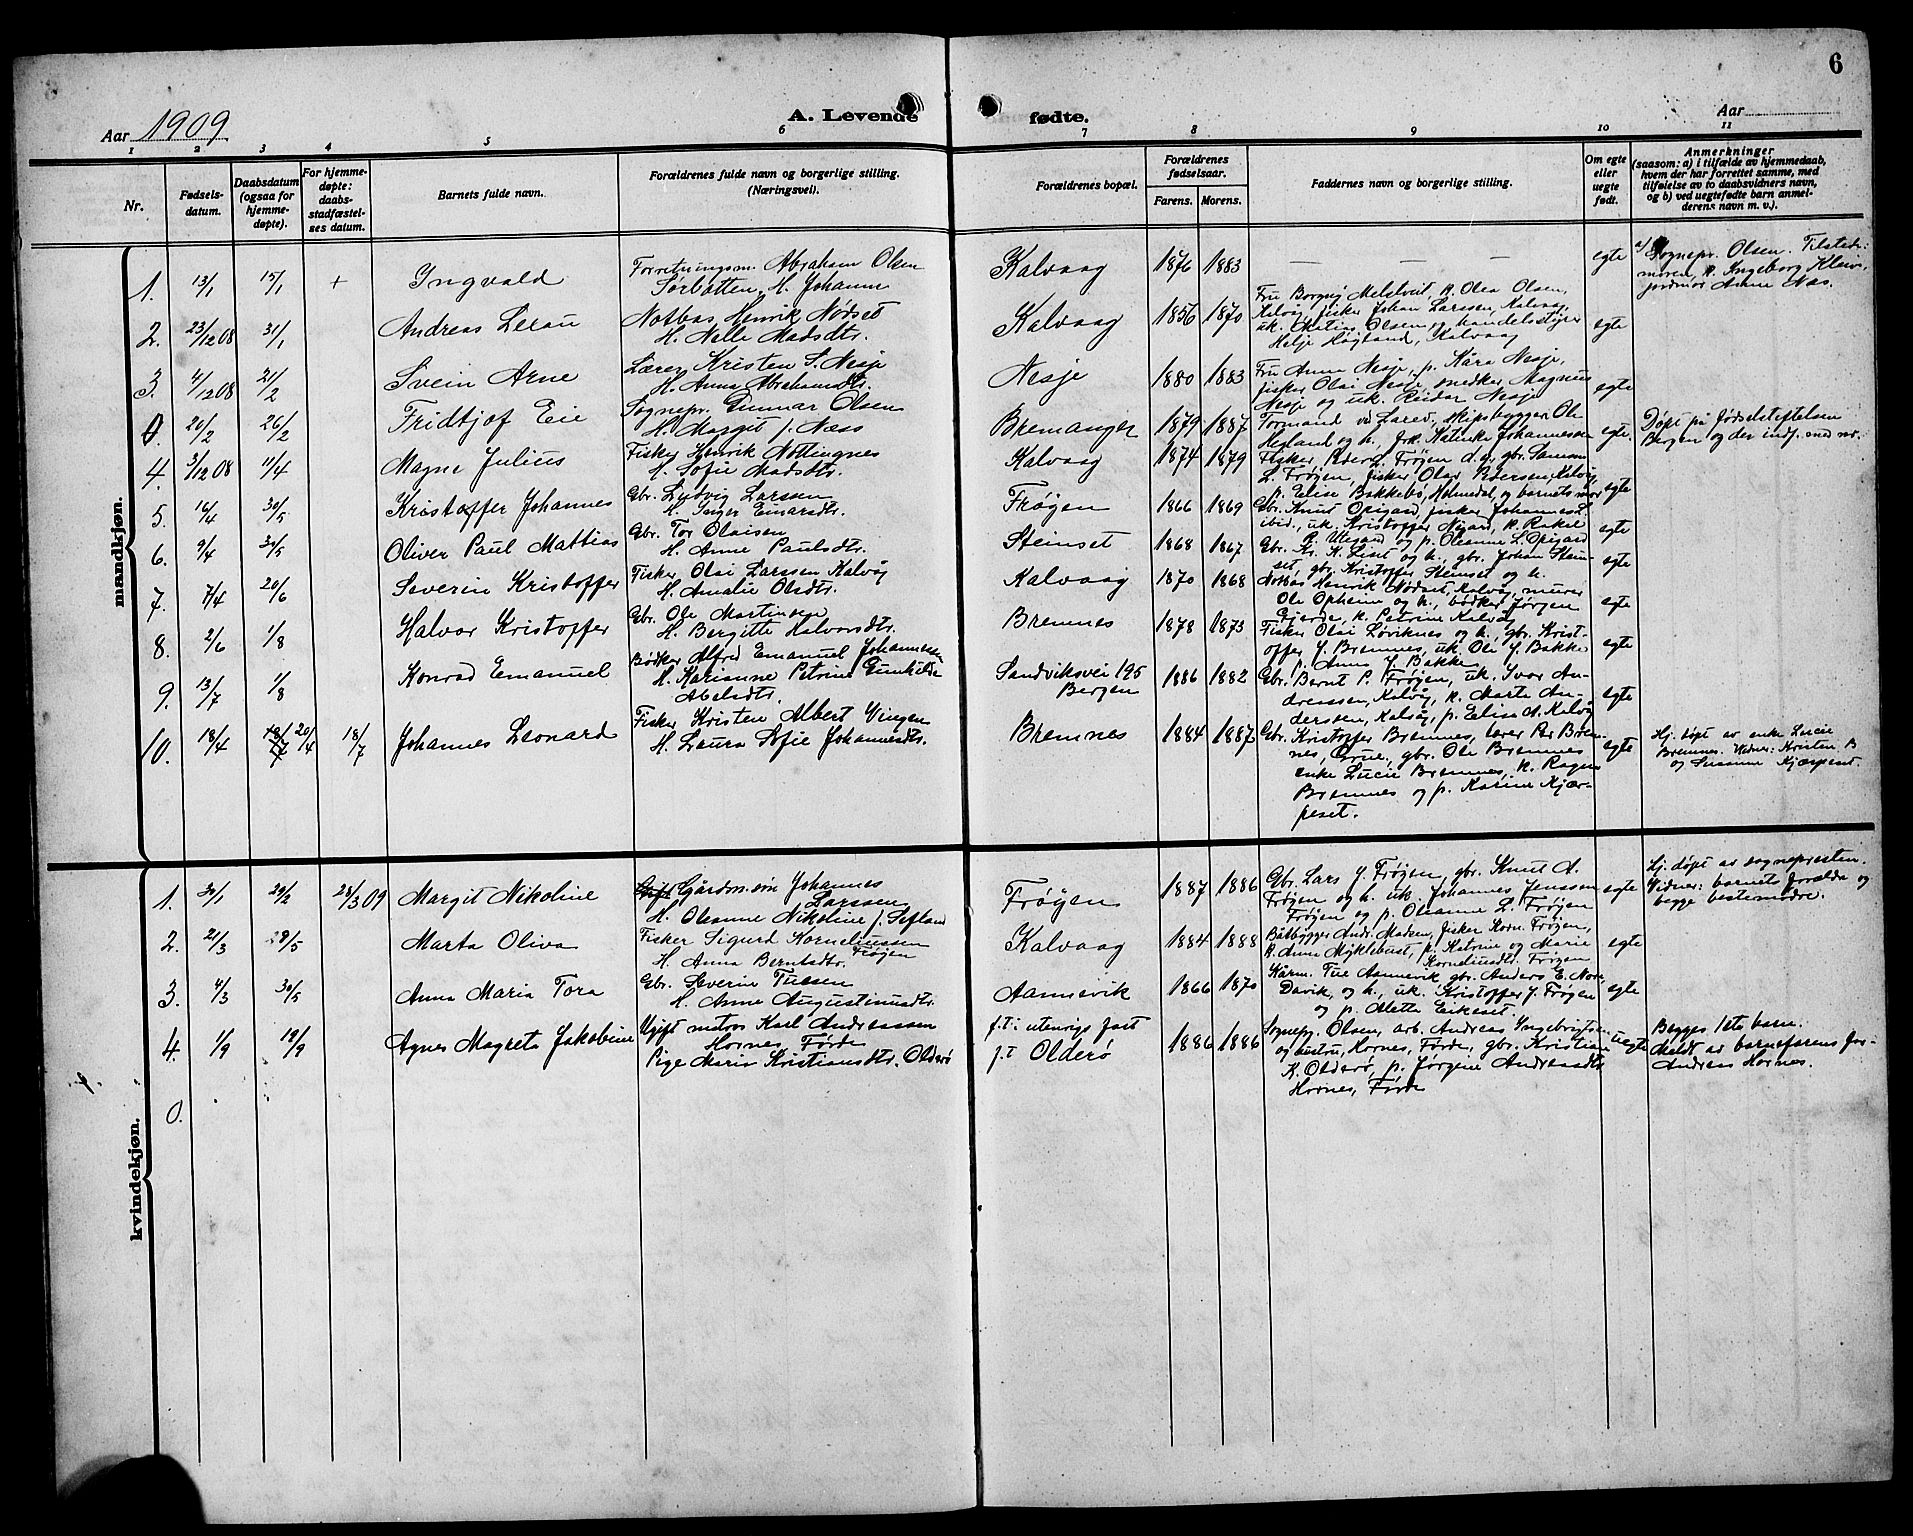 6
Aar 1909
A. Levende
fødte.
Aar
1 2 3 4 5 6 7 8 9 10 11
Nr.
Fødsels-
datum.
Daabsdatum
(ogsaa for
hjemme-
døpte).
For hjemme-
døpte:
daabs-
stadfæstel-
ses datum.
Barnets fulde navn.
Forældrenes fulde navn og borgerlige stilling.
(Næringsvei).
Forældrenes bopæl.
Forældrenes
fødselsaar.
Farens. Morens.
Faddernes navn og borgerlige stilling.
Om egte
eller
uegte
født.
Anmerkninger
(saasom: a) i tilfælde av hjemmedaab,
hvem der har forrettet samme, med
tilføielse av to daabsvidners navn,
og b) ved uegtefødte barn anmel-
derens navn m. v.).
mandkjøn.
1. 13/1 15/1 + Ingvald
Forretningsm. Abraham Olsen
Sørbotten, H. Johanne
Kalvaag 1876 1883 — — — egte
a/ Sognepr. Olsen. Tilstede:
moren, k. Ingeborg Kleiv,
jordmor Anne Næs.
2. 23/12 08 31/1 Andreas Lerau
Notbas Henrik Nødset
H. Nelle Madsdtr.
Kalvaag 1856 1870
Fru Borgny Melstveit, k. Olea Olsen,
Kalvåg, fisker Johan Larssen, Kalvåg,
uk. Matias Olsen og handelsstyrer
Helje Høgland, Kalvaag
egte
3. 4/12 08 21/2 Svein Arne
Lærer Kristen S. Nesje
H. Anna Abrahamsdtr.
Nesje 1880 1883
Fru Anna Nesje, p. Kåra Nesje,
fisker Olai Nesje, snedker Magnus
Nesje og uk. Reidar Nesje
egte
0. 20/2 26/2 Fridtjof Eie
Sognepr. Gunnar Olsen
H. Margit f. Næss
Bremanger 1879 1887
Formand v. Lared, skipsbygger Ole
Hegland og h. frk. Katinka Johannessen
egte.
Døpt på Fødselstiftelsen
Bergen og der indf. med nr.
4. 3/12 08 11/4 Magne Julius
Fisker Henrik Nøttingnes
H. Sofie Madsdtr.
Kalvaag 1874 1879
Fisker Peder L. Frøyen d.e., gbr. Samson
L. Frøyen, fisker Olai Pedersen, Kalvåg,
p. Elise Bakkebø, Holmedal, og barnets mor
egte
5. 16/4 30/5 Kristoffer Johannes
Gbr. Ludvig Larssen
H. Inger Einarsdtr.
Frøyen 1866 1869
Gbr. Knut Opigard, fisker Johannes L.
ibid., uk. Kristoffer Nigard, k. Rakel
R. Utigard og p. Oleanne L. Opigard
egte
6. 9/4 30/5 Oliver Paul Mattias
Gbr. Tor Olaisen
H. Anne Paulsdtr.
Steinset 1868 1867
Gbr. Kr. K. Liset og h. gbr. Johan Stein-
set, gbr. Kristoffer Steinset og h.
egte
7. 7/4 20/6 Severin Kristoffer
Fisker Olai Larssen Kalvåg
H. Amalie Olsdtr.
Kalvaag 1870 1868
Notbas Henrik Nødset, Kalvåg, murer
Ole Opheim og h., bødker Jørgen
Gjerde, k. Petrine Kalvåg
egte
8. 2/6 1/8 Halvor Kristoffer
Gbr. Ole Martinsen
H. Bergitte Halvorsdtr.
Bremnes 1878 1873
Fisker Olai Løviknes og h., gbr. Krist-
offer J. Bremnes, uk. Ole J. Bakke
p. Anna J. Bakke
egte
9. 13/7 1/8 Konrad Emanuel
Bødker Alfred Emanuel Johannessen
H. Karianne Petrine Gunhilda
Abelsdtr.
Sandviksvei 195
Bergen
1886 1882
Gbr. Bernt P. Frøyen, uk. Ivar An-
dreassen, Kalvåg, k. Marta An-
derssen, Kalvåg, p. Elisa A. Kalvåg
egte
10. 18/4 18/7 20/4 18/7 Johannes Leonard
Fisker Kristen Albert Vingen
H. Laura Sofie Johannesdtr.
Bremnes 1884 1887
Gbr. Kristoffer Bremnes, lærer Per Brem-
nes, Grue, gbr. Ole Bremnes
enke Lucie Bremnes, k. Ragna
Bremnes og p. Karine Kjær-
peset.
egte
Hj. døpt av enke Lucie
Bremnes. Vidner: Kristen B
og Susanne Kjærpeset.
kvindekjøn.
1. 30/1 20/2 28/3 09 Margit Nikoline
Gårdm. søn Johannes
Larssen
H. Oleanne Nikoline f. Sefland
Frøyen 1887 1886
Gbr. Lars J. Frøyen, gbr. Knut A.
Frøyen og h. uk. Johannes Jenssen
Frøyen og p. Oleanne L. Frøyen
egte
Hj. døpt av sognepresten.
Vidner: barnets forældre og
begge bestemødre.
2. 21/3 28/5 Marta Oliva
Fisker Sigurd Korneliussen
Frøyen
H. Anna Berntsdtr.
Kalvaag 1884 1888
Båtbygger Andr. Madsen, fisker Korn. Frøyen,
k. Anna Myklebust, p. Katrine og Marie
Korneliusdtr. Frøyen
egte
3. 4/3 30/5 Anna Maria Tora
Gbr. Severin Tuesen
H. Anne Augustinusdtr.
Aannevik 1866 1870
Kårm. Tue Aannevik, gbr. Anders E. Nore
Davik, og h., uk. Kristoffer J. Frøyen
og p. Aletta Eikeset
egte
4. 1/9 19/9 Agnes Magreta Jakobine
Ugift matros Karl Andreassen
Hornes, Førde
Pige Maria Kristiansdtr. Olderø
f.t. utenrigs fart
f.t Olderø
1886 1886
Sognepr. Olsen, arb. Andreas Ingebrigtsen
og hustru, Hornes, Førde, gbr. Kristian
K. Olderø, p. Jørgine Andreasdtr
Hornes, Førde
uegte
Begges 1ste barn.
Meldt av barnefarens far
Andreas Hornes.
0.